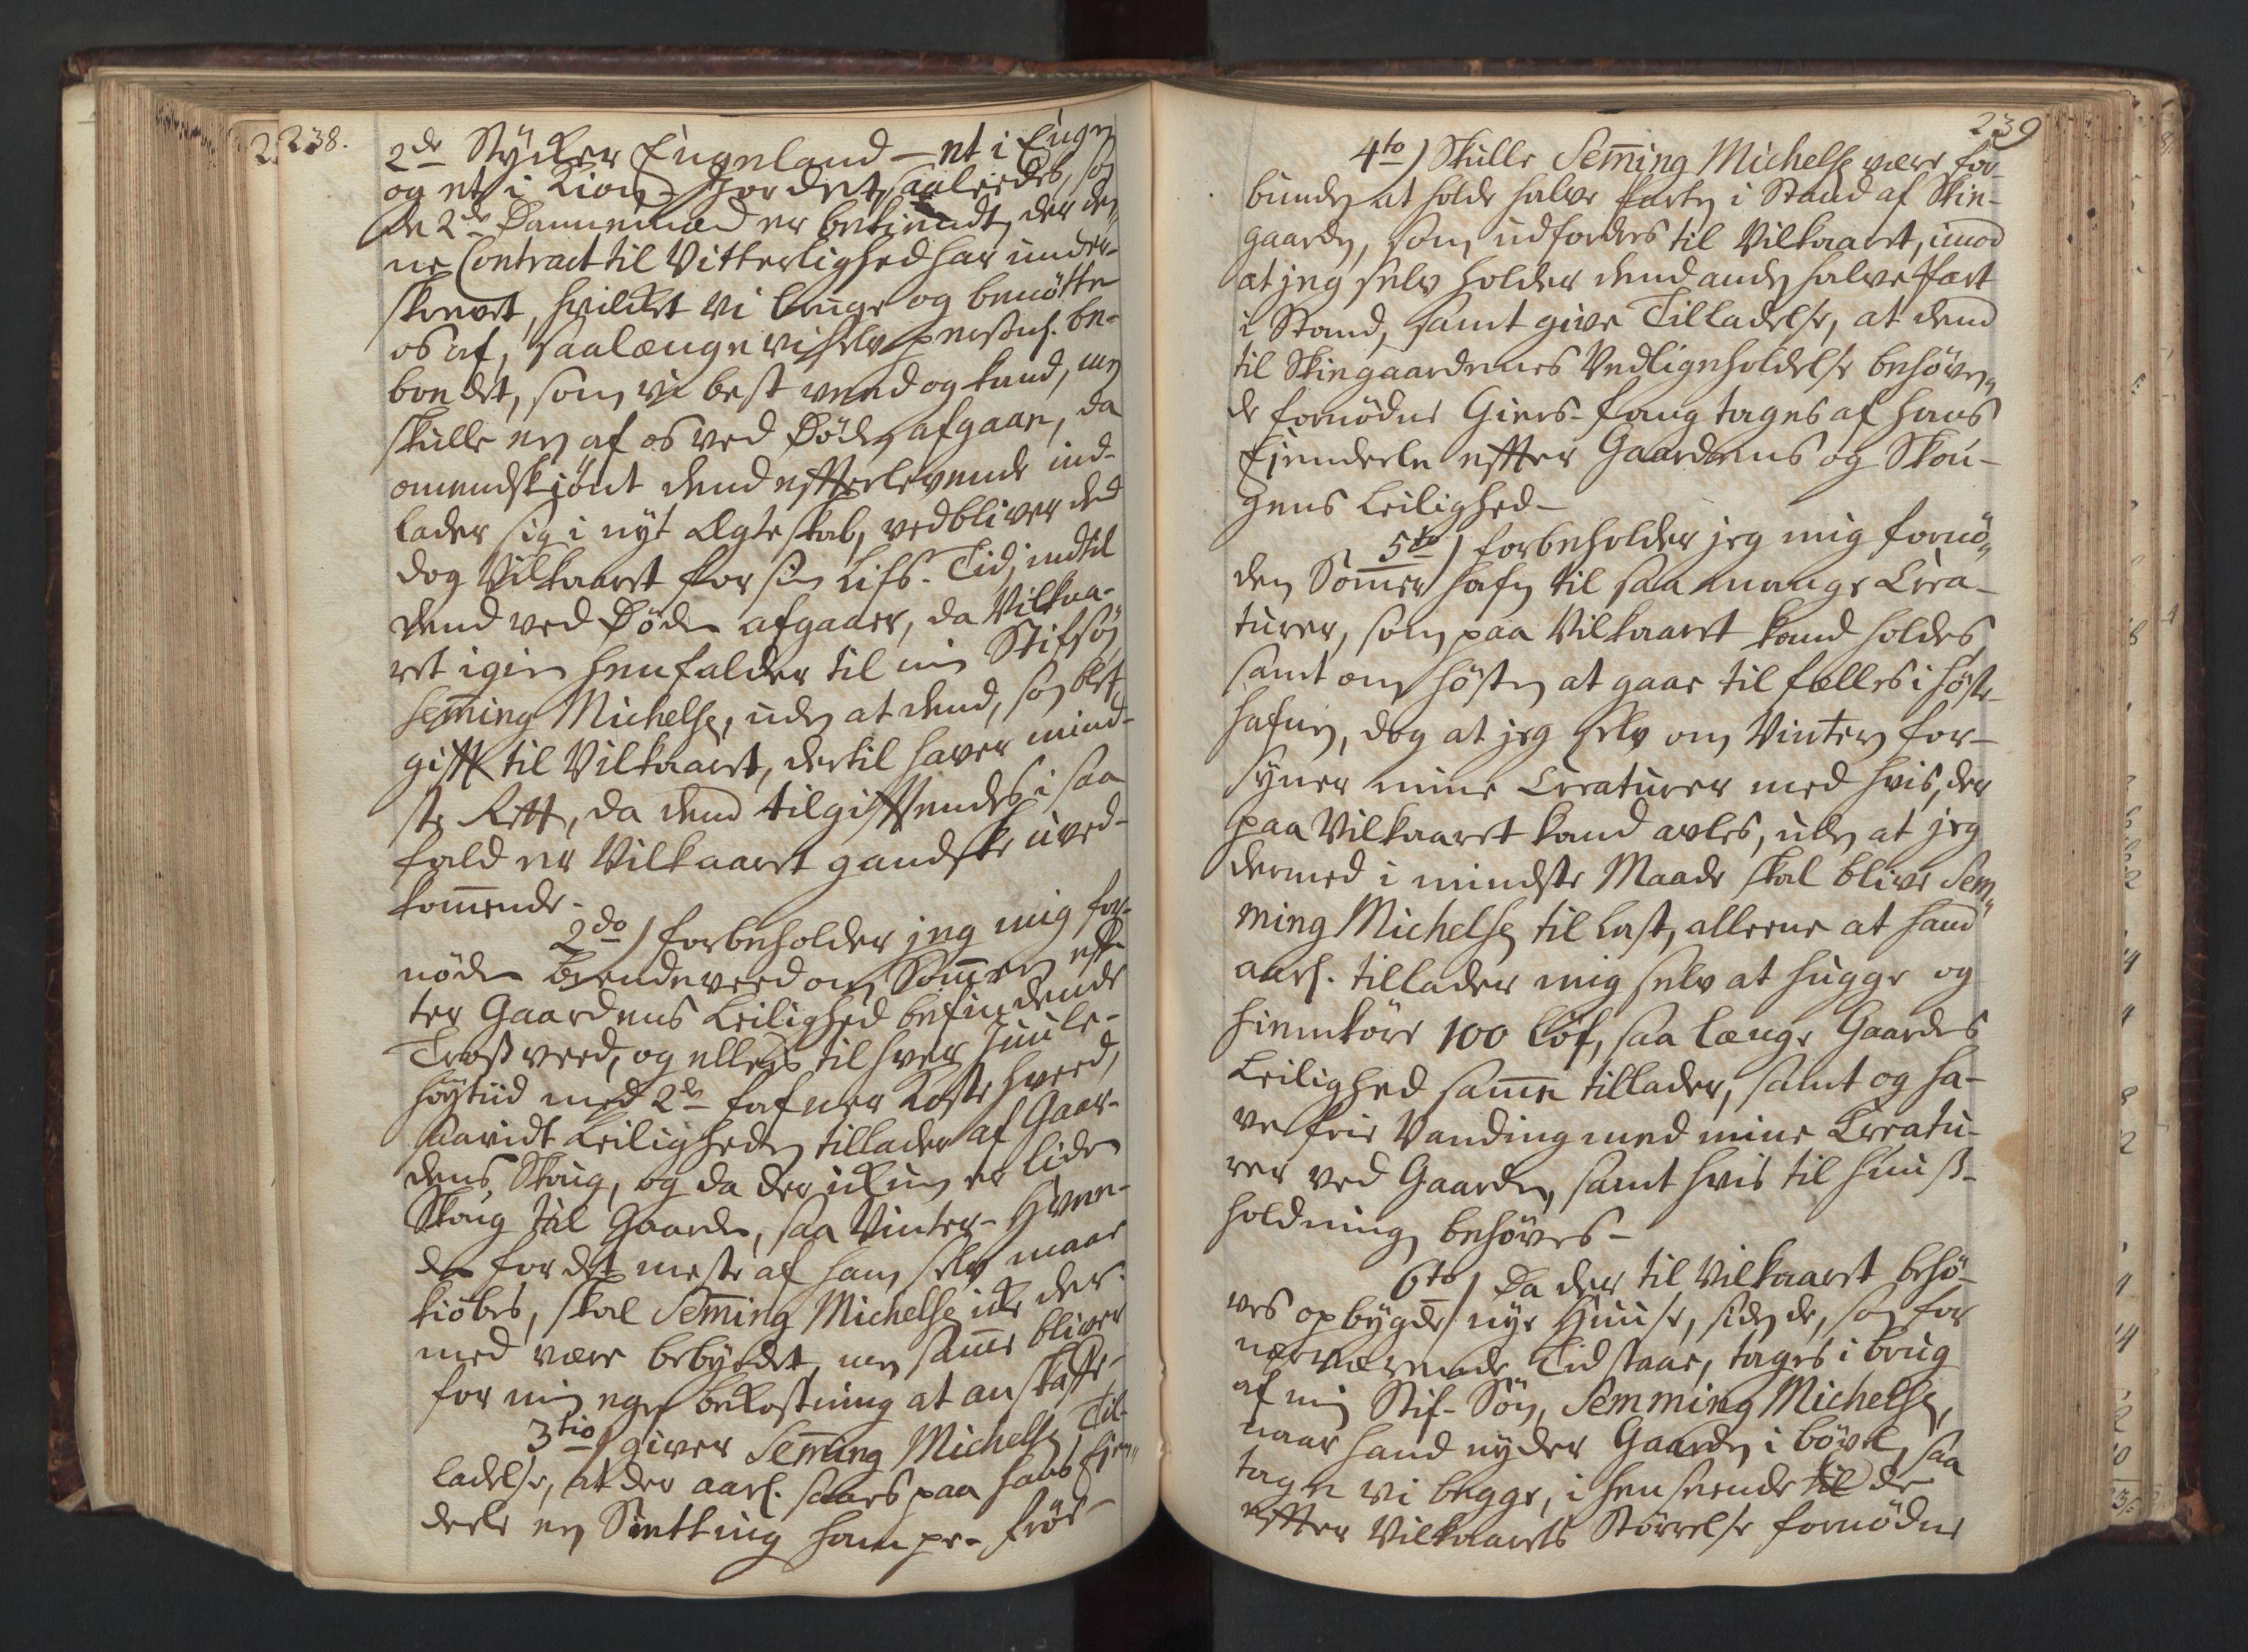 238.
2de Stÿcker Engeland – et i Engen
og et i Kior- Jordet, saaleedes, som
de 2de Dannemænd er bekiendt, der den,,
ne Contract til Vitterlighed har under-
skrevet, hvilket vi bruge og benötte
os af, saalænge vi selv personl. be-
boe det, som vi best veed og kand, men
skulle en af os ved Döden afgaae, da
omendskiönt dend efterlevende ind-
lader sig i nÿt Ægteskab, vedbliver ded
dog Vilkaaret for sin Lifs-Tid, indtil
dend ved Döden afgaaer, da Vilkaa-
ret igien henfalder til min Stifsön
Semming Michelsen, uden at dend, som blef
gifft til Vilkaaret, dertil haver mind-
ste Rett, da dend tilgifftendes i saa
fald er Vilkaaret gandske uved-
kommende.
2do) forbeholder jeg mig for-
nöden Brendeveed om Sommeren eff-
ter Gaardens Leilighed befindende
Trosveed, og ellers til hver Juule-
höÿtiid med 2de fafner Kostehveed,
saavidt Leiligheden tillader af Gaar-
dens Skoug, og da der ickun er liden
Skoug til Gaarden, saa Vinter-
for det meste af ham selv maae
kiöbes, skal Semming Michelsen icke der-
med være bebÿrdet, men samme bliver
for min egen bekostning at anskaffe-
3tio) giver Semming Michelsen Til-
ladelse, at der aarl. saaes paa hans Ejen,,
deele en Setting hampe-fröe-
239
4to) Skulle Semming Michelsen være for-
bunden at holde halve Parten i Stand af Skie-
gaarden, som udfordres til Vilkaaret, imod
at jeg selv holder dend anden halve Part
i Stand, samt give Tilladelse, at dend
til Skiegaardenes Vedligeholdelse behöven,,
de fornödne Giers-fang tages af hans
Ejendeele effter Gaardens og Skou-
gens Leilighed-
5to) forbeholder jeg mig fornö,,
den Sommerhafn til saa mange Crea-
turer, som paa Vilkaaret kand holdes,
samt om hösten at gaae til felles i höste-
hafnen, dog at jeg selv om Vinteren for-
sÿner mine Creaturer med hvis, der
paa Vilkaaret kand avles, uden at jeg
dermed i mindste Maade skal blive Sem,,
ming Michelsen til last, alleene at hand
aarl. tillader mig selv at hugge og
hiemköre 100 löf, saa længe Gaardens
Leilighed samme tillader, samt og ha-
ve frie Vanding med mine Creatu-
rer ved Gaarden, samt hvis til huus-
holdning behöves-
6to) Da der til Vilkaaret behö-
ves opbÿgde nÿe Huuse, siden de, som for
nærværende Tid staae, tages i brug
af min Stif-Sön, Semming Michelsen,
naar hand nÿder Gaarden i böxel, saa
tage vi begge, i henseende til de
effter Vilkaarets Störrelse fornödne